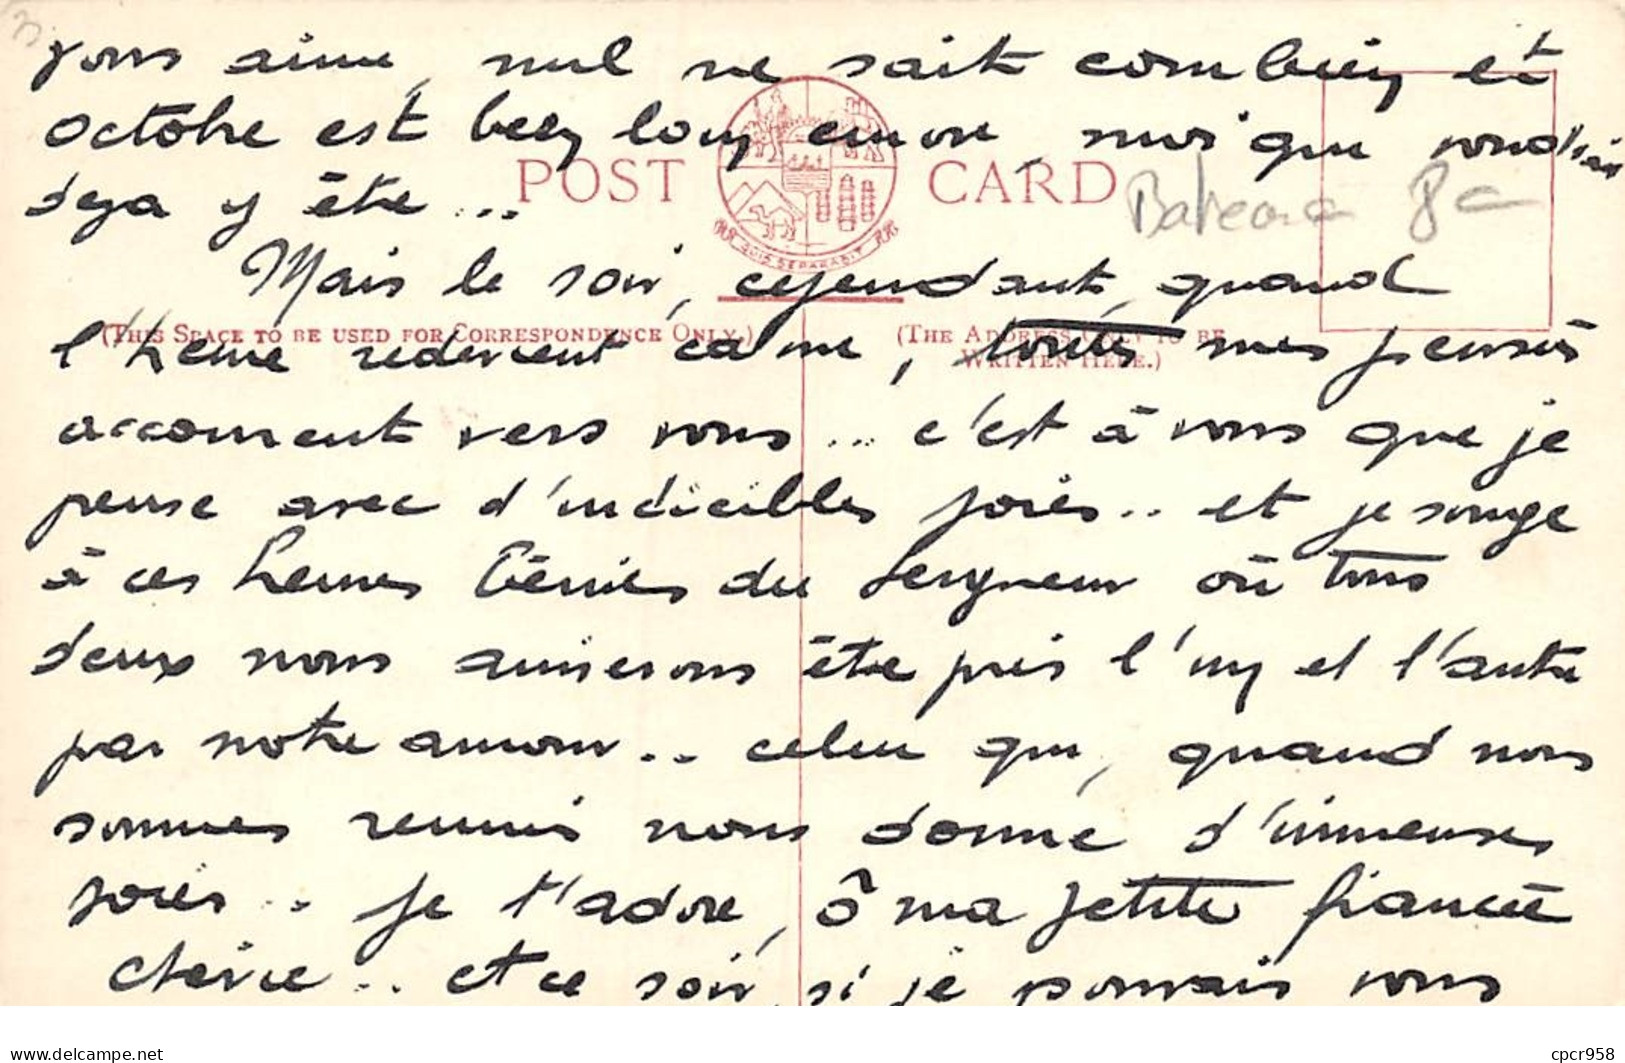 3
vous aime, nul ne sait combien et
octobre est bien loin encore, moi qui voudrais
déjà y être ...
POST CARD
QUIS SEPARABIT
Bateaux 8c
Mais le soir, cependant, quand
(THIS SPACE TO BE USED FOR CORRESPONDENCE ONLY.)
(THE ADDRESS ONLY TO BE
WRITTEN HERE.)
l'heure redevient calme, toutes mes pensées
accourent vers vous ... c'est à vous que je
pense avec d'indicibles joies .. et je songe
à ces heures bénies du Seigneur où tous
deux nous aimerons être près l'un et l'autre
par notre amour .. celui qui, quand nous
sommes réunis nous donne d'immenses
joies .. je t'adore, ô ma petite fiancée
chérie .. et ce soir, si je pouvais vous
cpcr958